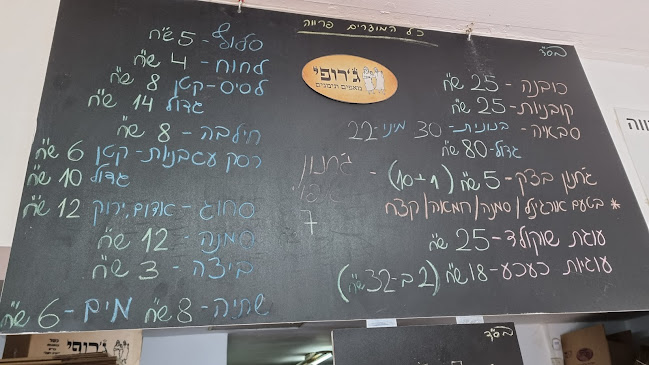 בס"ד
כל המוצרים פרווה
ג'רופי
מאפים תימניים
כובנה - 25 ש"ח
קובניות - 25 ש"ח
סבאיה - בנונית - 30 מיני - 22
גדול - 80 ש"ח
ג'חנון בצק - 5 ש"ח (1 + 10)
* בטעם אורגינל / סמנה / חמאה / קצח
עוגת שוקולד - 25 ש"ח
עוגיות כעכע - 18 ש"ח (2 ב-32 ש"ח)
ג'חנון
7
סלוף - 5 ש"ח
לחוח - 4 ש"ח
לסיס - קטן 8 ש"ח
גדול 14 ש"ח
חילבה - 8 ש"ח
רסק עגבניות - קטן 6 ש"ח
גדול 10 ש"ח
סחוג - אדום, ירוק 12 ש"ח
סמנה - 12 ש"ח
ביצה - 3 ש"ח
שתיה - 8 ש"ח מים - 6 ש"ח
בס"ד
ג'רופי